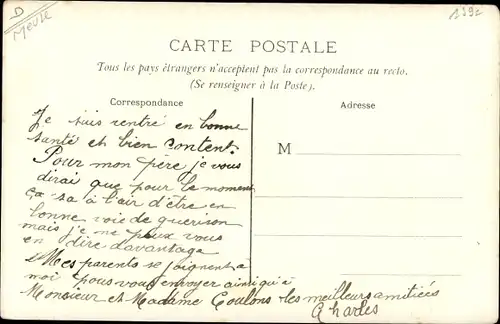 D
Meuse
CARTE POSTALE
Tous les pays étrangers n'acceptent pas la correspondance au recto.
(Se renseigner à la Poste).
Correspondance
Adresse
M
Je suis rentré en bonne
santé et bien content.
Pour mon père je vous
dirai que pour le moment
ça sa à l'air d'être en
bonne voie de guerison
mais je ne peux vous
en dire davantage
Mes parents se joignent a
moi pous vous envoyer ainsi qu'à
Monsieur et Madame Coulons les meilleurs amitiés
Charles